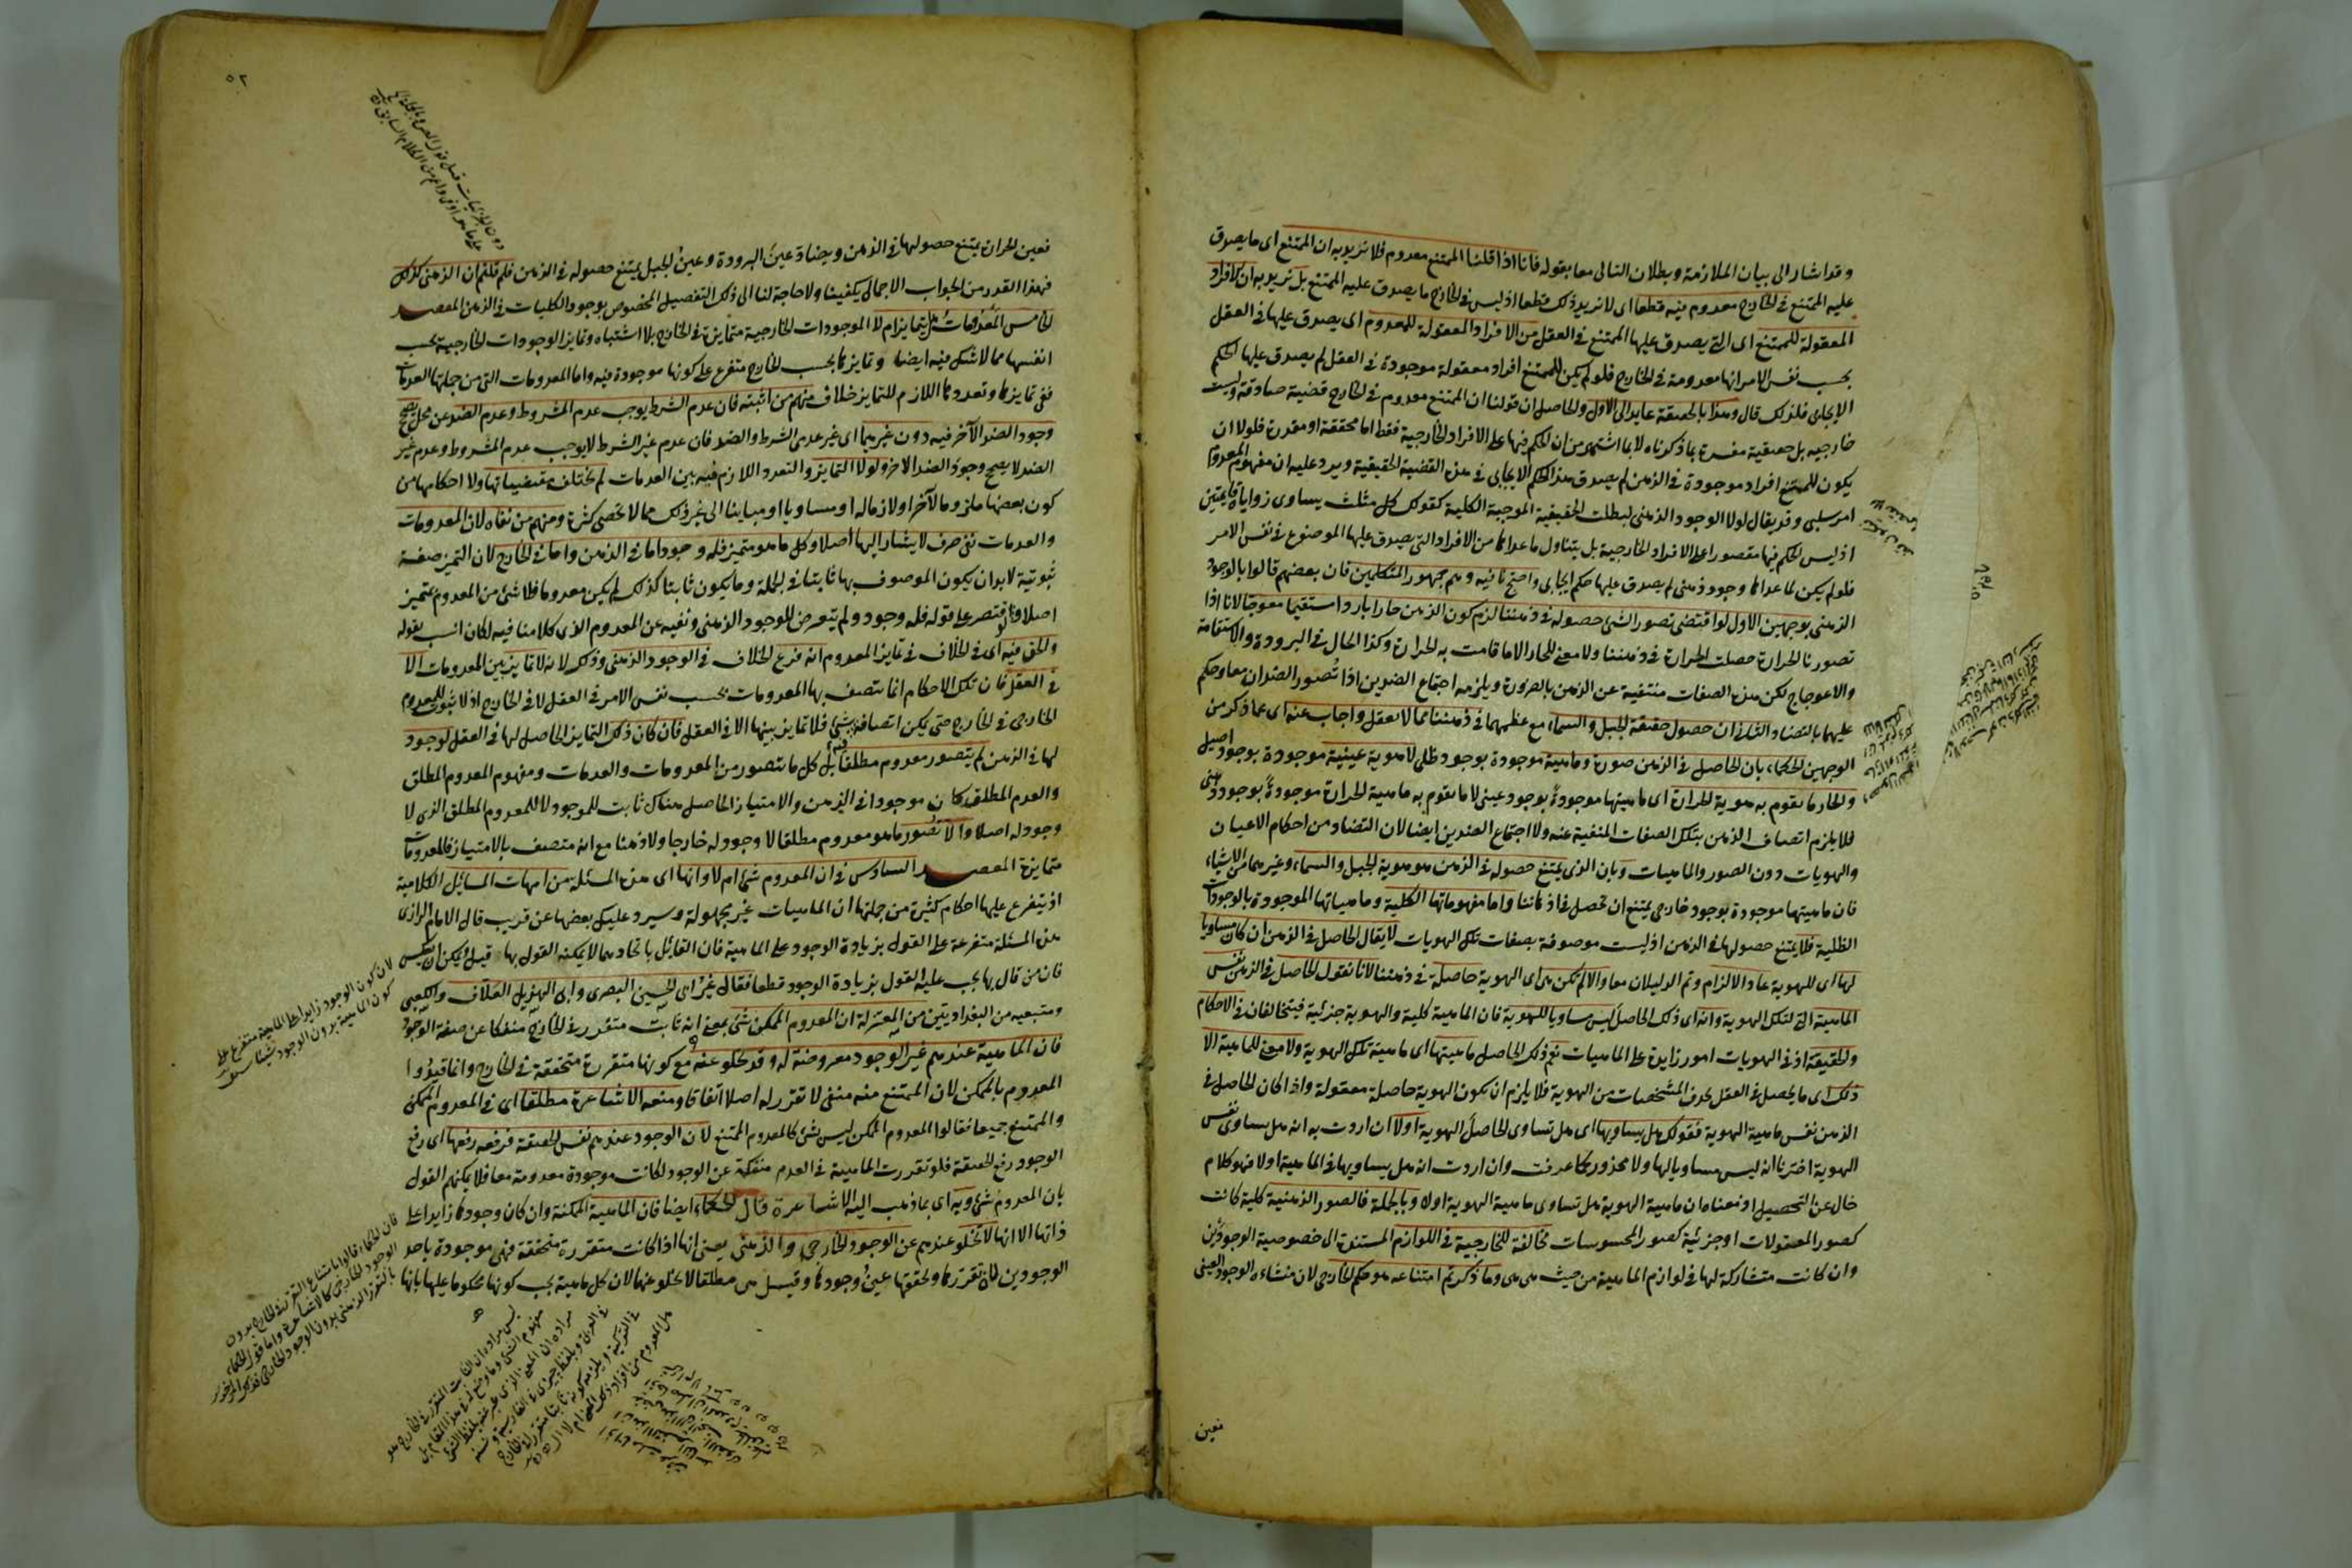 وقد اشار الى بيان الملازمة وبطلان التالى معا بقوله فانا اذا قلنا الممتنع معدوم فلا نريد به ان الممتنع اى ما يصدق
عليه الممتنع فى الخارج معدوم فيه قطعا اى لا نريد ذلك قطعا اذ ليس فى الخارج ما يصدق عليه الممتنع بل نريد به ان الافراد
المعقولة للممتنع اى التى يصدق عليها الممتنع فى العقل من الافراد المعقولة للمعدوم اى يصدق عليها فى العقل
بحسب نفس الامر انها معدومة فى الخارج فلو لم يكن للممتنع افراد معقولة موجودة فى العقل لم يصدق عليها الحكم
الايجابى فلذلك قال وهذا بالحقيقة عايد الى الاول والحاصل ان قولنا ان الممتنع معدوم فى الخارج قضية صادقة وليست
خارجية بل حقيقية مفسرة بما ذكرناه لا بما اشتهر من ان الحكم فيها على الافراد الخارجية فقط اما محققة او مقدرة فلولا ان
يكون للممتنع افراد موجودة فى الذهن لم يصدق هذا الحكم الايجابى فى هذه القضية الحقيقية ويرد عليه ان مفهوم المعدوم
امر سلبى وقد يقال لولا الوجود الذهنى لبطلت الحقيقية الموجبة الكلية كقولك كل مثلث يساوى زواياه قايمتين
اذ ليس الحكم فيها مقصورا على الافراد الخارجية بل يتناول ما عداها من الافراد التى يصدق عليها الموضوع فى نفس الامر
فلو لم يكن لما عداها وجود ذهنى لم يصدق عليها حكم ايجابى واحتج نافيه وهم جمهور المتكلمين فان بعضهم قالوا بالوجود
الذهنى بوجهين الاول لو اقتضى تصور الشئ حصوله فى ذهننا لزم كون الذهن حارا باردا مستقيما معوجا لانا اذا
تصورنا الحرارة حصلت الحرارة فى ذهننا ولا معنى للحار الا ما قامت به الحرارة وكذا الحال فى البرودة والاستقامة
والاعوجاج لكن هذه الصفات منتفية عن الذهن بالضرورة ويلزمه اجتماع الضدين اذا تصور الضدان معا وحكم
عليهما بالتضاد الثانى ان حصول حقيقة الجبل والسماء مع عظمهما فى ذهننا مما لا يعقل واجاب عنه اى عما ذكر من
الوجهين الحكماء بان الحاصل فى الذهن صورة وماهية موجودة بوجود ظلى لا هوية عينية موجودة بوجود اصيل
والحار ما يقوم به هوية الحرارة اى ماهيتها موجودة بوجود عينى لا ما يقوم به ماهية الحرارة موجودة بوجود ذهنى
فلا يلزم اتصاف الذهن بتلك الصفات المنفية عنه ولا اجتماع الضدين ايضا لان التضاد من احكام الاعيان
والهويات دون الصور والماهيات وبان الذى يمتنع حصوله فى الذهن هو هوية الجبل والسماء وغيرهما من الاشياء
فان ماهيتها موجودة بوجود خارجى يمتنع ان تحصل فى اذهاننا واما مفهوماتها الكلية وماهياتها الموجودة بالوجودات
الظلية فلا يمتنع حصولها فى الذهن اذ ليست موصوفة بصفات تلك الهويات لا يقال الحاصل فى الذهن ان كان مساويا
لها اى للهوية عاد الالزام وتم الدليلان معا والا لم تكن هى اى الهوية حاصلة فى ذهننا لانا نقول الحاصل فى الذهن نفس
الماهية التى لتلك الهوية وانه اى ذلك الحاصل ليس مساويا للهوية فان الماهية كلية والهوية جزئية فيتخالفان فى الاحكام
والحقيقة اذ فى الهويات امور زايدة على الماهيات نعم ذلك الحاصل ماهيتها اى ماهية تلك الهوية ولا معنى للماهية الا
ذلك اى ما يحصل فى العقل بحذف المشخصات من الهوية فلا يلزم ان تكون الهوية حاصلة معقولة واذا كان الحاصل فى
الذهن نفس ماهية الهوية فقولك هل يساويها اى هل تساوى الحاصل الهوية اولا ان اردت به انه هل يساوى نفس
الهوية اخترنا انه ليس مساويا لها ولا محذور كما عرفت وان اردت انه هل يساويها فى الماهية اولا فهو كلام
خال عن التحصيل اذ معناه ان ماهية الهوية هل تساوى ماهية الهوية اولا وبالجملة فالصور الذهنية كلية كانت
كصور المعقولات او جزئية كصور المحسوسات مخالفة للخارجية فى اللوازم المستندة الى خصوصية الوجودين
وان كانت متشاركة لها فى لوازم الماهية من حيث هى هى وما ذكرتم امتناعه هو حكم الخارجى لان منشاءه الوجود العينى
فعين
٥٢
فعين الحرارة يمتنع حصولها فى الذهن ويضاد عين البرودة وعين الجبل يمتنع حصوله فى الذهن فلم قلتم ان الذهنى كذلك
فهذا القدر من الجواب الاجمالى يكفينا ولا حاجة لنا الى ذلك التفصيل المخصوص بوجود الكليات فى الذهن المقصد
الخامس المعدومات هل تتمايز ام لا الموجودات الخارجية متمايزة فى الخارج بلا اشتباه وتمايز الوجودات الخارجية بحسب
انفسها مما لا شك فيه ايضا وتمايزها بحسب الخارج متفرع على كونها موجودة فيه واما المعدومات التى من جملتها العدمات
ففى تمايزها وتعددها اللازم للتمايز خلاف منهم من اثبته فان عدم الشرط يوجب عدم المشروط وعدم الضد عن محل يصحح
وجود الضد الآخر فيه دون غيرهما اى غير عدمى الشرط والضد فان عدم غير الشرط لا يوجب عدم المشروط وعدم غير
الضد لا يصحح وجود الضد الاخر ولولا التمايز والتعدد اللازم فيه بين العدمات لم تختلف مقتضياتها ولا احكامها من
كون بعضها ملزوما لآخر او لازما له او مساويا او مباينا الى غير ذلك مما لا تحصى كثرة ومنهم من نفاه لان المعدومات
والعدمات نفى صرف لا يشار اليها اصلا وكل ما هو متميز فله وجود اما فى الذهن واما فى الخارج لان التميز صفة
ثبوتية لا بد ان يكون الموصوف بها ثابتا فى الجملة وما يكون ثابتا كذلك لم يكن معدوما فلا شئ من المعدوم بمتميز
اصلا ولو اقتصر على قوله فله وجود ولم يتعرض للوجود الذهنى ونفيه عن المعدوم الذى كلامنا فيه لكان انسب بقوله
والحق فيه اى فى الخلاف فى تمايز المعدوم انه فرع الخلاف فى الوجود الذهنى وذلك لانه لا تمايز بين المعدومات الا
فى العقل فان تلك الاحكام انما تتصف بها المعدومات بحسب نفس الامر فى العقل لا فى الخارج اذ لا ثبوت للمعدوم
الخارجى فى الخارج حتى يمكن اتصافه فيه بشئ فلا تمايز بينها الا فى العقل فان كان ذلك التمايز الحاصل لها فى العقل لوجود
لها فى الذهن لم يتصور معدوم مطلقا بل كل ما يتصور من المعدومات والعدمات ومفهوم المعدوم المطلق
والعدم المطلق كان موجودا فى الذهن والامتياز الحاصل هناك ثابت للموجود لا للمعدوم المطلق الذى لا
وجود له اصلا والا تصور ما هو معدوم مطلقا لا وجود له خارجا ولا ذهنا مع انه متصف بالامتياز فالمعدومات
متمايزة المقصد السادس فى ان المعدوم شئ ام لا وانها اى هذه المسئلة من امهات المسائل الكلامية
اذ يتفرع عليها احكام كثيرة من جملتها ان الماهيات غير مجعولة وسيرد عليك بعضها عن قريب قال الامام الرازى
هذه المسئلة متفرعة على القول بزيادة الوجود على الماهية فان القائل باتحادهما لا يمكنه القول بها قيل ويمكن ان يعكس
فان من قال بها يجب عليه القول بزيادة الوجود قطعا فقال غير ابى الحسين البصرى وابى الهذيل العلاف والكعبى
ومتبعيه من البغداديين من المعتزلة ان المعدوم الممكن شئ بمعنى انه ثابت متقرر فى الخارج منفكا عن صفة الوجود
فان الماهية عندهم غير الوجود معروضة له وقد تخلو عنه مع كونها متقررة متحققة فى الخارج وانما قيدوا
المعدوم بالممكن لان الممتنع منه منفى لا تقرر له اصلا اتفاقا ومنعه الاشاعرة مطلقا اى فى المعدوم الممكن
والممتنع جميعا فقالوا المعدوم الممكن ليس بشئ كالمعدوم الممتنع لان الوجود عندهم نفس الحقيقة فرفعه رفعها اى رفع
الوجود رفع الحقيقة فلو تقررت الماهية فى العدم منفكة عن الوجود لكانت موجودة معدومة معا فلا يمكنهم القول
بان المعدوم شئ وبه اى بما ذهب اليه الاشاعرة قال الحكماء ايضا فان الماهية الممكنة وان كان وجودها زايدا على
ذاتها الا انها لا تخلو عندهم عن الوجود الخارجى والذهنى يعنى انها اذا كانت متقررة متحققة فهى موجودة باحد
الوجودين لان تقررها وتحققها عين وجودها وقيل هى مطلقا لا تخلو عنها لان كل ماهية يجب كونها محكوما عليها بانها
لان كون الوجود زايدا على الماهية متفرع على
كون الماهية بدون الوجود شيئا
فان الحكماء قالوا بامتناع التقرر فى الخارج بدون
الوجود الخارجى كالاشاعرة واما قول الحكماء
بالتقرر الذهنى بدون الوجود الخارجى